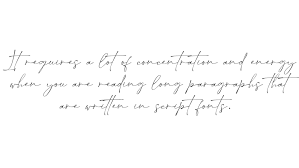 It requires a lot of concentration and energy
when you are reading long paragraphs that
are written in script fonts.